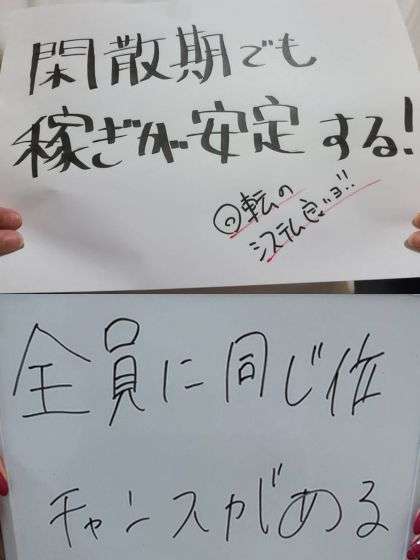 閑散期でも
稼ぎが安定する!
回転の
システム良いヨ!!
全員に同じ位
チャンスがある